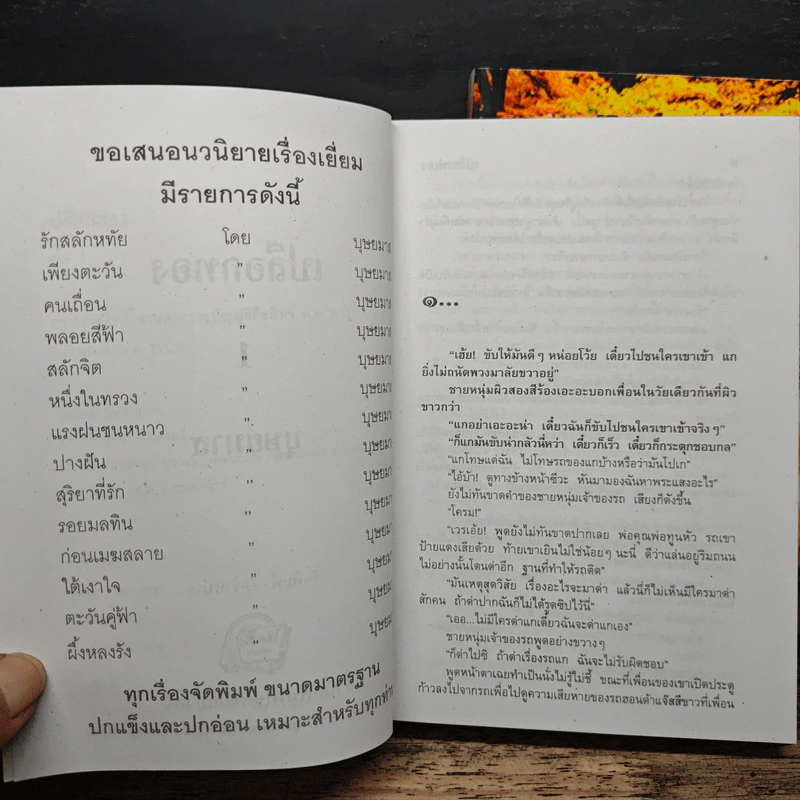 ขอเสนอนวนิยายเรื่องเยี่ยม
มีรายการดังนี้
รักสลักหทัย โดย บุษยมาส
เพียงตะวัน " บุษยมาส
คนเถื่อน " บุษยมาส
พลอยสีฟ้า " บุษยมาส
สลักจิต " บุษยมาส
หนึ่งในทรวง " บุษยมาส
แรงฝนชนหนาว " บุษยมาส
ปางฝัน " บุษยมาส
สุริยาที่รัก " บุษยมาส
รอยมลทิน " บุษยมาส
ก่อนเมฆสลาย " บุษยมาส
ใต้เงาใจ " บุษยมาส
ตะวันคู่ฟ้า " บุษยมาส
ผึ้งหลงรัง " บุษยมาส
ทุกเรื่องจัดพิมพ์ ขนาดมาตรฐาน
ปกแข็งและปกอ่อน เหมาะสำหรับทุกท่าน
๑...
"เฮ้ย! ขับให้มันดีๆ หน่อยโว้ย เดี๋ยวไปชนใครเขาเข้า แก
ยิ่งไม่ถนัดพวงมาลัยขวาอยู่"
ชายหนุ่มผิวสองสีร้องเอะอะบอกเพื่อนในวัยเดียวกันที่ผิว
ขาวกว่า
"แกอย่าเอะอะน่า เดี๋ยวฉันก็ขับไปชนใครเขาเข้าจริงๆ"
"ก็แกมันขับน่ากลัวนี่หว่า เดี๋ยวก็เร็ว เดี๋ยวก็กระตุกชอบกล"
"แกโทษแต่ฉัน ไม่โทษรถของแกบ้างหรือว่ามันโปเก"
"ไอ้บ้า! ดูทางข้างหน้าซีวะ หันมามองฉันหาพระแสงอะไร"
ยังไม่ทันขาดคำของชายหนุ่มเจ้าของรถ เสียงก็ดังขึ้น
"โครม!"
"เวรเอ้ย! พูดยังไม่ทันขาดปากเลย พ่อคุณพ่อทูนหัว รถเขา
ป้ายแดงเสียด้วย ท้ายเขาเยินไม่ใช่น้อยๆ นะนี่ ดีว่าแล่นอยู่ริมถนน
ไม่อย่างนั้นโดนด่าอีก ฐานที่ทำให้รถติด"
"มันเหตุสุดวิสัย เรื่องอะไรจะมาด่า แล้วนี่ก็ไม่เห็นมีใครมาด่า
สักคน ถ้าด่าปากฉันก็ไม่ได้รูดซิปไว้นี่"
"เออ...ไม่มีใครด่าแกเดี๋ยวฉันจะด่าแกเอง"
ชายหนุ่มเจ้าของรถพูดอย่างขวางๆ
"ก็ด่าไปซิ ถ้าด่าเรื่องรถแก ฉันจะไม่รับผิดชอบ"
พูดหน้าตาเฉยทำเป็นนั่งไม่รู้ไม่ชี้ ขณะที่เพื่อนของเขาเปิดประตู
ก้าวลงไปจากรถเพื่อไปดูความเสียหายของรถฮอนด้าแจ๊สสีขาวที่เพื่อน